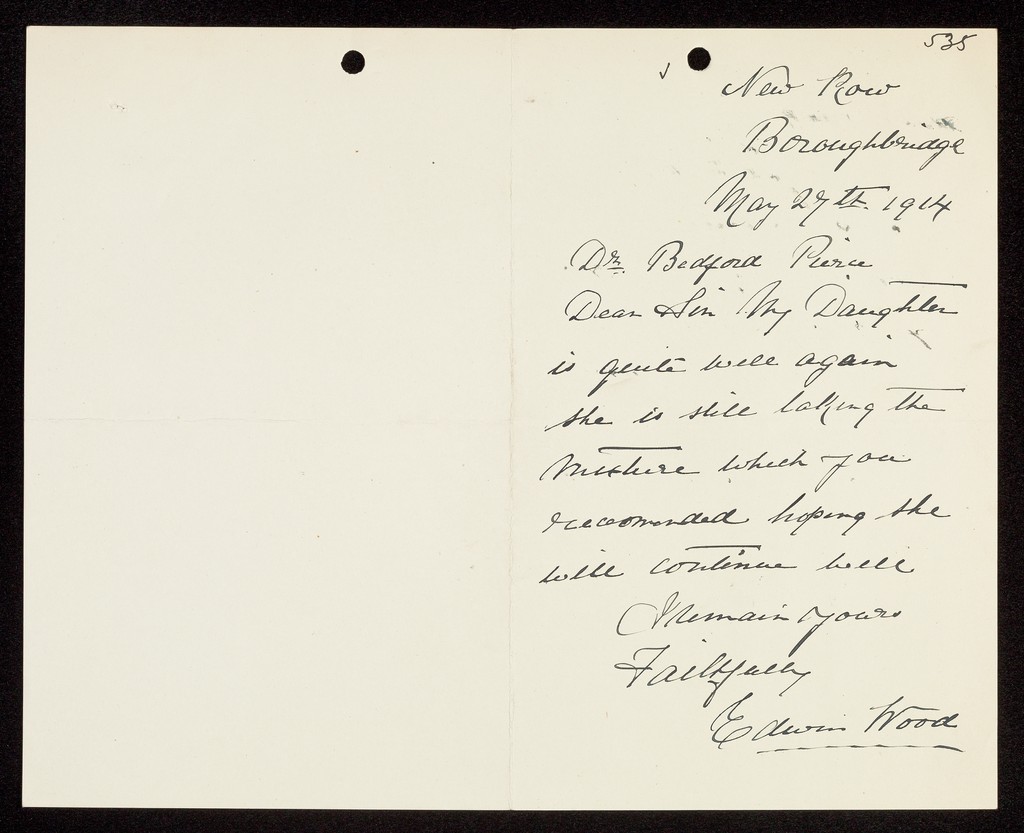 535
New Row
Boroughbridge
May 27th. 1914
Dr. Bedford Pierce
Dear Sir My Daughter
is quite well again
she is still taking the
Mixture which you
reccomended hoping she
will continue well
I Remain yours
Faithfully
Edwin Wood